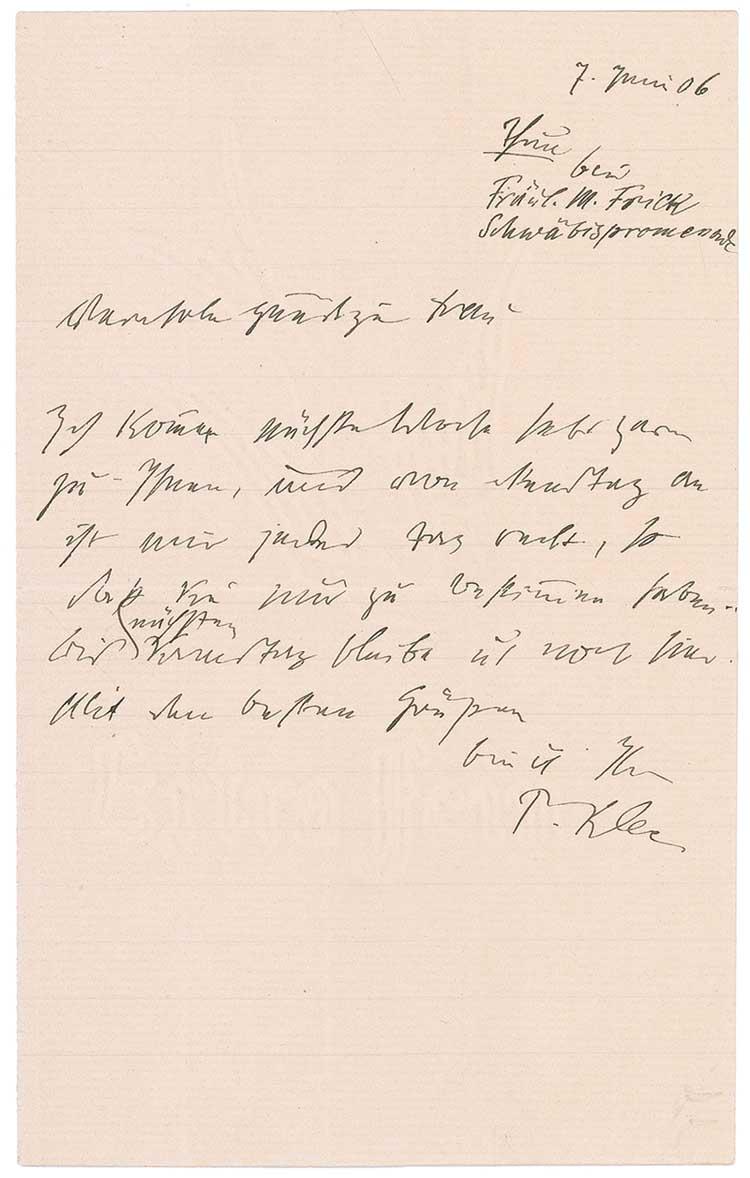 7. Juni 06
Thun
bei
Fräul. M. Frick
Schwäbispromenade
Verehrte gnädige Frau
Ich komme nächste Woche sehr gern
zu Ihnen, und von an
ist mir jeder Tag recht, so
daß Sie nur zu bestimmen haben.-
nächsten
Bis bleibe ich noch hier.
Mit den besten Grüßen
bin ich Ihr
P. Klee